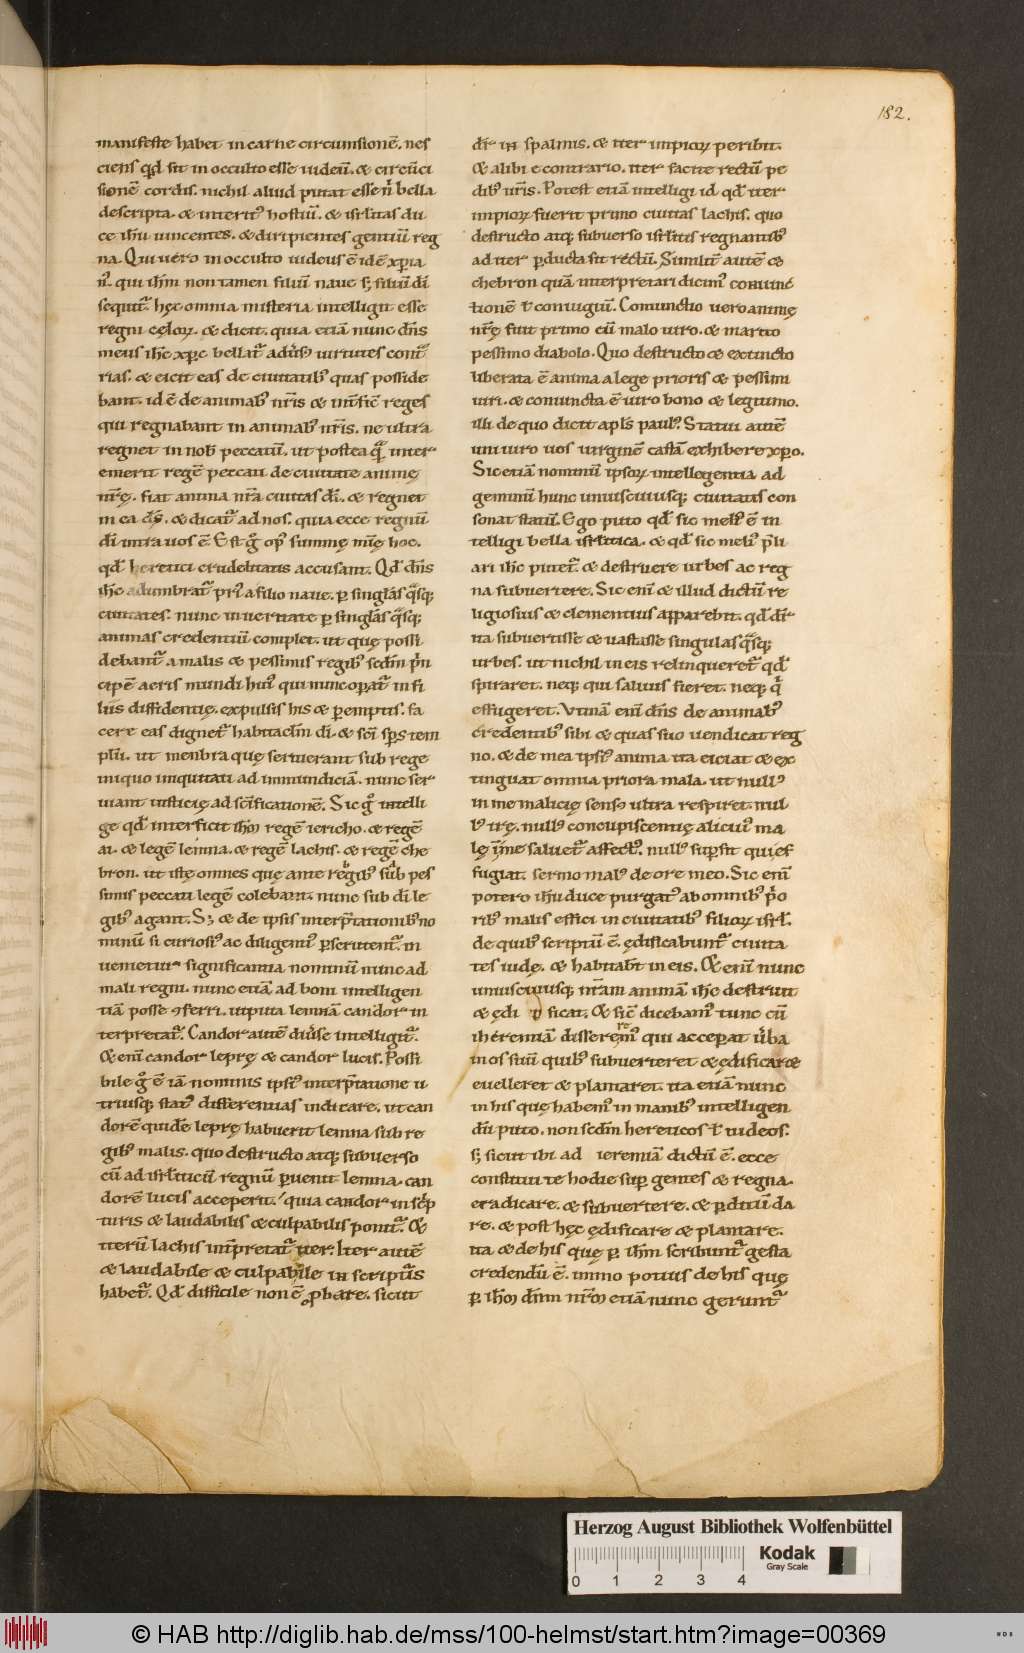 182.
manifeste habet in carne circumsionē. nes
ciens qd̄ sit in occulto esse iudeū. & circūci
sionē cordis. nichil aliud putat esse nˡ bella
descripta. & interitꝰ hostiū. & isrłitas du
ce ihū uincentes. & diripientes gentiū reg
na. Qui uero in occulto iudeus ē id ē xp̄ia
nꝰ. qui ihm̄ non tamen filiū naue sꝫ filiū dī
sequitᷣ. hęc omnia misteria intelligit esse
regni cęloꝝ. & dicit. quia etiā nunc dn̄s
meus ihc̄ xpc̄ bellatᷣ aduꝰsꝰ uirtutes cont̄
rias. & eicit eas de ciuitatibꝰ quas posside
bant. id ē de animabꝰ nr̄is & int̄ficit reges
qui regnabant in animabꝰ nr̄is. ne ultra
regnet in nob̄ peccatū. ut postea quā inter
emerit regē peccati de ciuitate animę
nr̄ę. fiat anima nr̄a ciuitas dī. & regnet
in ea ds̄. & dicatᷣ ad nos. quia ecce regnū
dī intra uos ē. Est g̊ opꝰ summę mīę hoc.
qd̄ heretici crudelitatis accusant. Qd̄ dn̄s
ihc̄ adumbratᷣ priꝰ a filio naue. ꝑ singłas qᷓsqꝫ
ciuitates. nunc in ueritate ꝑ singłas qᷓsqꝫ
animas credentiū complet. ut quę possi
debantᷣ a malis & pessimis regibꝰ scdm̄ pⁱn
cipē aeris mundi huiꝰ qui nunc opatᷣ in fi
liis diffidentię. expulsis his & ꝑemptis. fa
cere eas dignetᷣ habitaclm̄ dī. & scī sps̄ tem
plū. ut menbra quę seruierant sub rege
iniquo iniquitati ad inmundiciā. nunc ser
uiant iusticię ad scīficationē. Sic g̊ intelli
ge qd̄ interficit ihm̄ regē iericho. & regē
ai. & legē lemna. & regē lachis. & regē che
bron. ut istę omnes quę ante regibꝰ sub pes
simis peccati legē colebant. nunc sub dī le
gibꝰ agant. Sꝫ & de ipsis interp̄tationibꝰ no
minū si curiosiꝰ ac diligentiꝰ ꝑscrutemᷣ. in
uenietur significantia nominū nunc ad
mali regni. nunc etiā ad boni intelligen
tiā posse ꝯferri. utputa lemnā candor in
terpretatᷣ. Candor autē diuꝰse intelligitᷣ.
& enī candor leprę & candor lucis. Possi
bile g̊ ē iā nominis ipsiꝰ interp̄tatione u
triusqꝫ statꝰ differentias indicare. ut can
dorē quidē leprę habuerit lemna sub re
gibꝰ malis. quo destructo atqꝫ subuerso
cū ad isrłiticū regnū ꝑuenit lemna. can
dorē lucis acceperit. quia candor in scⁱp
turis & laudabilis & culpabilis ponitᷣ. &
iterū lachis int̄pretatᷣ iter. Iter autē
& laudabile & culpabile in scripturis
habetᷣ. Qd̄ difficile non ē ꝓbare. sicut
dr̄ in spalmis. & iter impioꝝ peribit.
& alibi e contrario. iter facite rectū pe
dibꝰ ur̄is. Potest etiā intelligi id qd̄ iter
impioꝝ fuerit primo ciuitas lachis. quo
destructo atqꝫ subuerso isrłitis regnantibꝰ
ad iter ꝑducta sit rectū. Similit̄ autē &
chebron quā interpretari dicimꝰ coniunc
tionē ł coniugiū. Coniunctio uero animę
nr̄ę fuit primo cū malo uiro. & marito
pessimo diabolo. Quo destructo & extincto
liberata ē anima a lege prioris & pessimi
uiri. & coniuncta ē uiro bono & legitimo.
illi de quo dicit apłs paulꝰ. Statui autē
uni uiro uos uirginē castā exhibere xp̄o.
Sic etiā nominū ipsoꝝ intellegentia ad
geminū hunc uniuscuiusqꝫ ciuitatis con
sonat statū. Ego puto qd̄ sic meliꝰ ē in
telligi bella isrłitica. & qd̄ sic meliꝰ p̄li
ari ihc̄ putetᷣ. & destruere urbes ac reg
na subuertere. Sic enī & illud dictū re
ligiosius & clementius apparebit. qd̄ dr̄
ita subuertisse & uastasse singulas qᷓsqꝫ
urbes. ut nichil in eis relinqueretᷣ qd̄
spiraret. neqꝫ qui saluus fieret. neqꝫ qⁱ
effugeret. Utinā enī dn̄s de animabꝰ
credentibꝰ sibi & quas suo uendicat reg
no. & de mea ipsiꝰ anima ita eiciat & ex
tinguat omnia priora mala. ut nullꝰ
in me malicię sensꝰ ultra respiret. nul
lꝰ irę. nullꝰ concupiscentię alicuiꝰ ma
lę in me saluetᷣ affectꝰ. nullꝰ suꝑsit qui ef
fugiat. sermo malꝰ de ore meo. Sic enī
potero ihū duce purgatꝰ ab omnibꝰ pⁱo
ribꝰ malis effici in ciuitatibꝰ filioꝝ isrł.
de quibꝰ scriptū ē. ędificabuntᷣ ciuita
tes iudę. & habitabt̄ in eis. & enī nunc
uniuscuiusqꝫ nr̄am animā ihc̄ destruit
& ędi ficat. & sic̄ dicebamꝰ tunc cū
iheremiā disseremꝰ qui acceperat uꝰba
in os suū quibꝰ subuerteret & ędificaret
euelleret & plantaret. ita etiā nunc
in his quę habemꝰ in manibꝰ intelligen
dū puto. non scdm̄ hereticos ł iudeos.
sꝫ sicut ibi ad ieremiā dictū ē. ecce
constitui te hodie suꝑ gentes & regna.
eradicare. & subuertere. & ꝑditū da
re. & post hęc ędificare & plantare.
ita & de his quę ꝑ ihm̄ scribuntᷣ gesta
credendū ē. immo potius de his quę
ꝑ ihm̄ dnm̄ nrm̄ etiā nunc geruntᷣ
Herzog August Bibliothek Wolfenbüttel
Kodak
Gray Scale
0 1 2 3 4
© HAB http://diglib.hab.de/mss/100-helmst/start.htm?image=00369